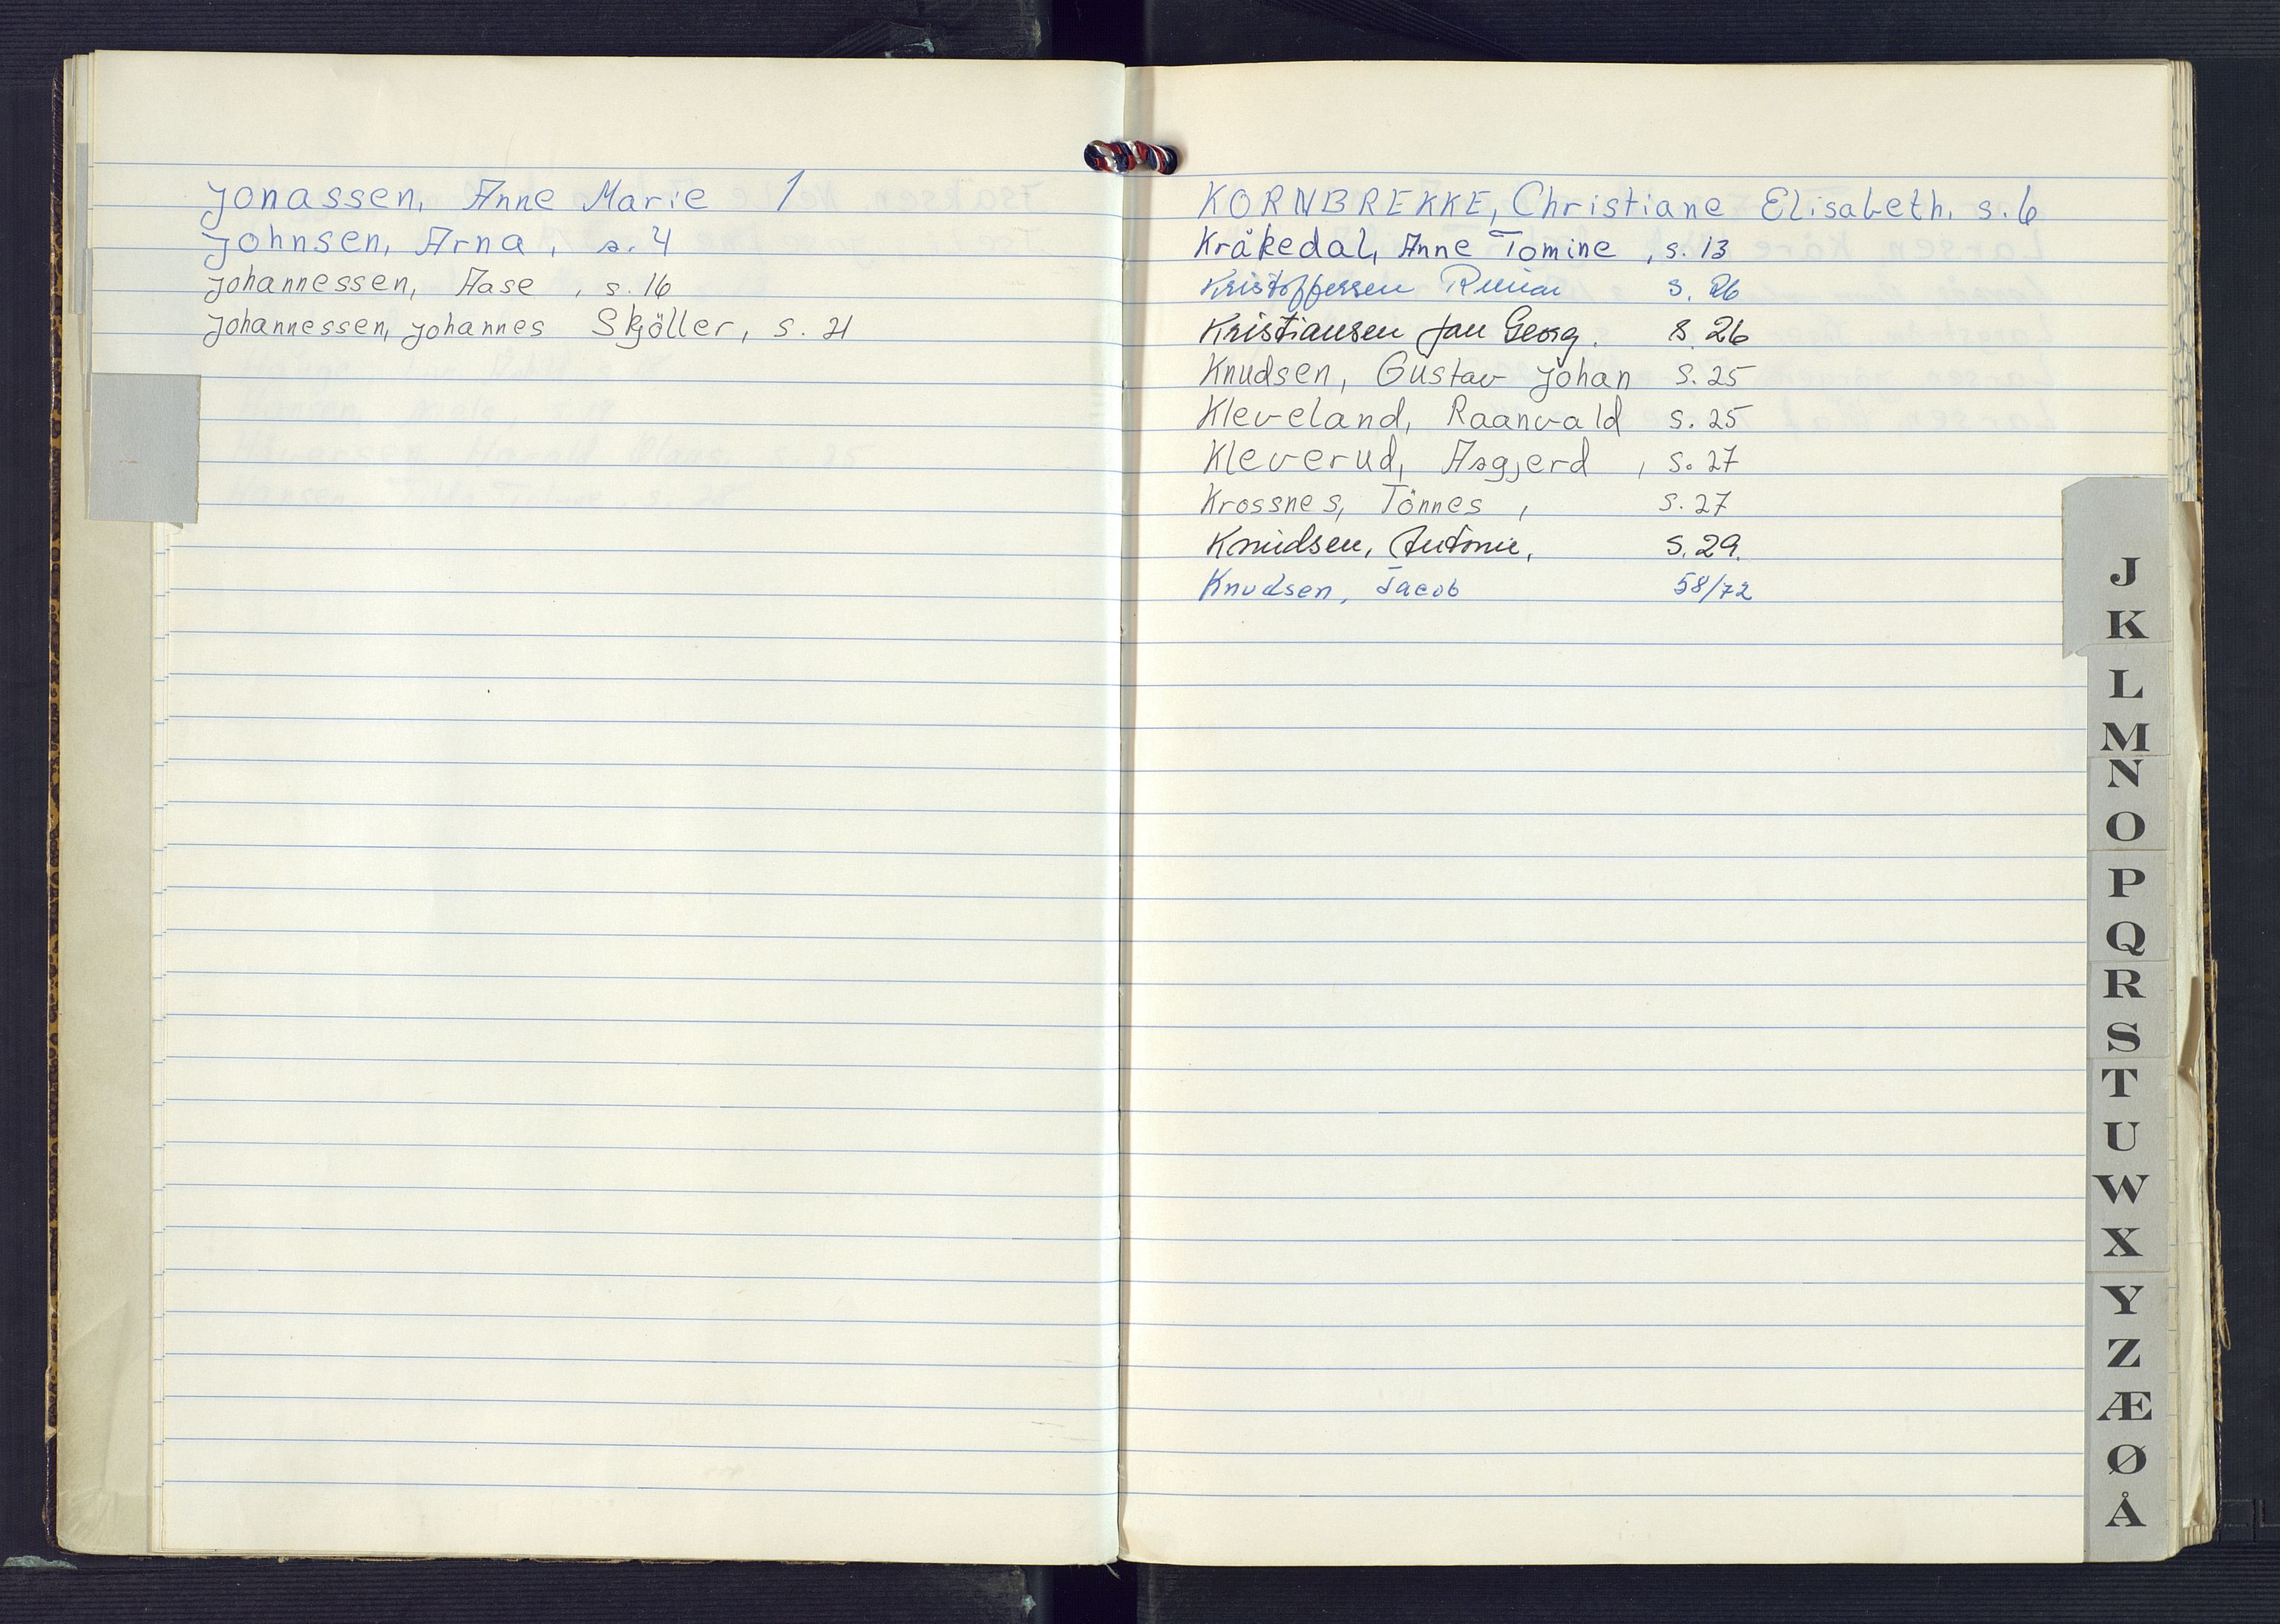 Jonassen, Anne Marie 1
Johnsen, Arna, s. 4
Johannessen, Aase, s. 16
Johannessen, Johannes Skjöller, s. 21
KORNBREKKE, Christiane Elisabeth, s. 6
Kråkedal, Anne Tomine, s. 13
Kristoffersen s. 26
Kristiansen Jan Georg. s. 26
Knudsen, Gustav Johan s. 25
Kleveland, Raanvald s. 25
Kleverud, Asgjerd, s. 27
Krossnes, Tönnes, s. 27
Knudsen, Antonie, s. 29.
Knudsen, Jacob 58/72
J
K
L
M
N
O
P
Q
R
S
T
U
W
X
Y
Z
Æ
Ø
Å